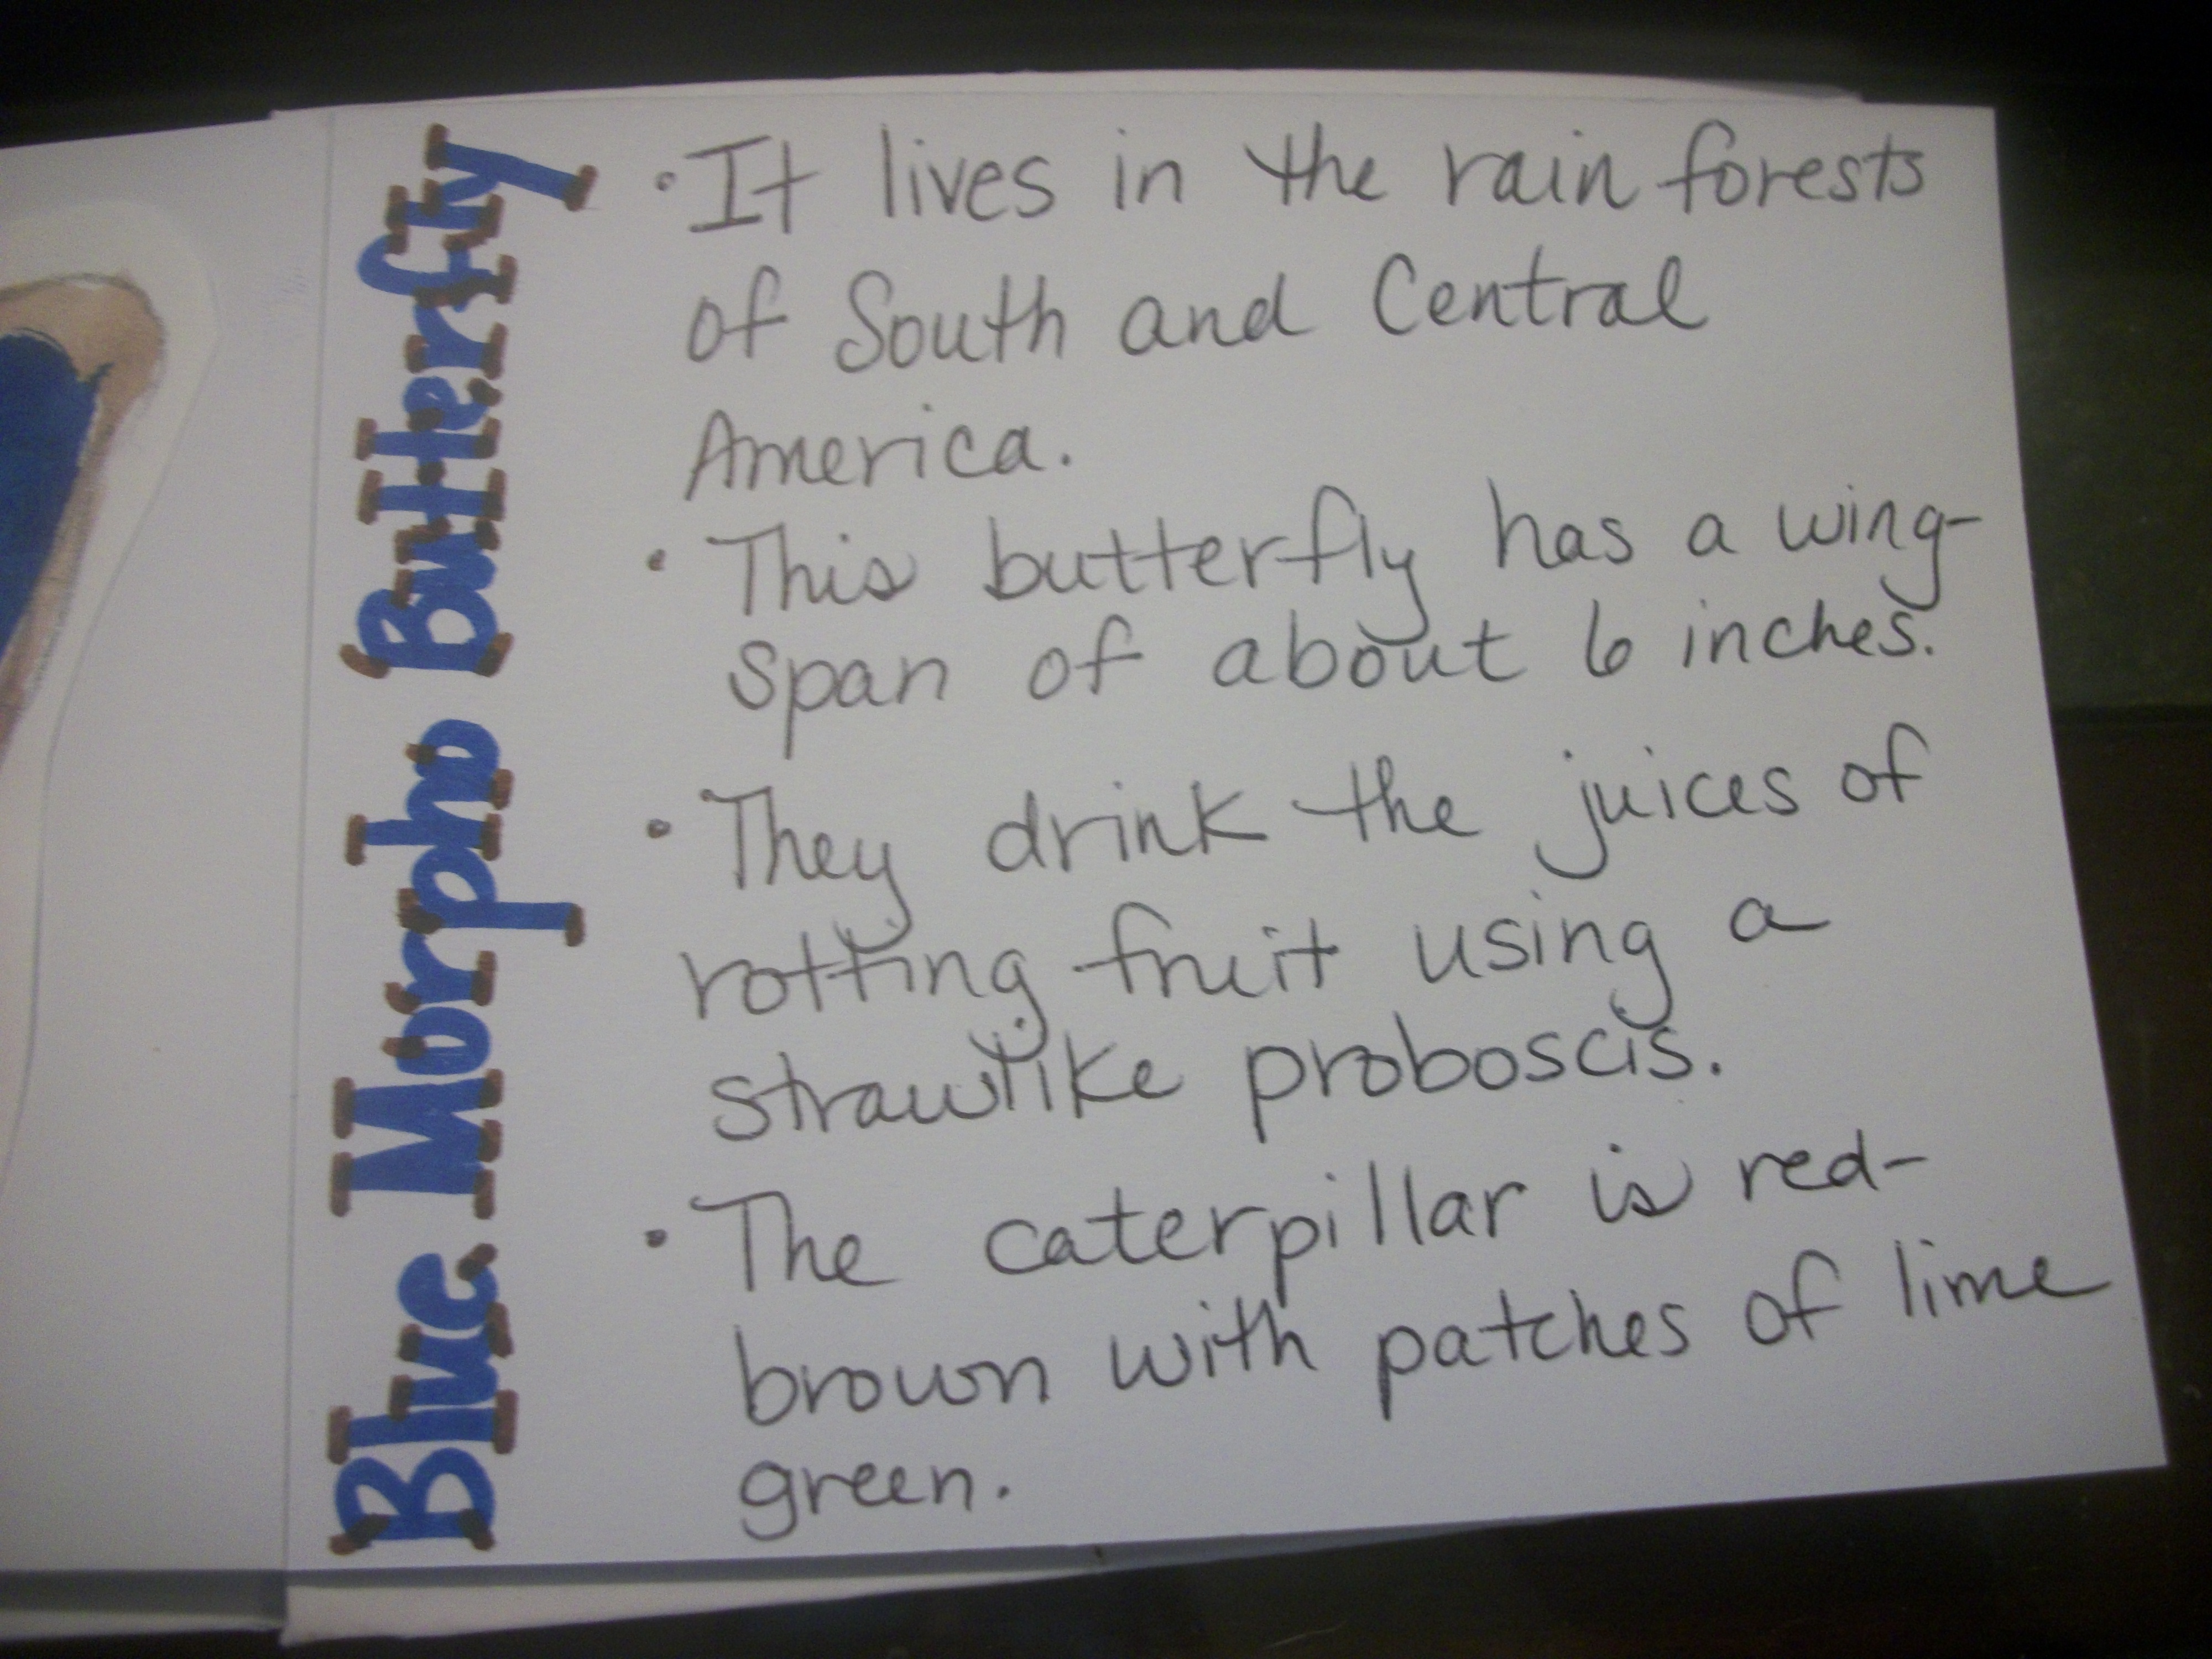 Blue Morpho Butterfly
• It lives in the rain forests
of South and Central
America.
• This butterfly has a wing-
span of about 6 inches.
• They drink the juices of
rotting fruit using a
strawlike proboscis.
• The caterpillar is red-
brown with patches of lime
green.